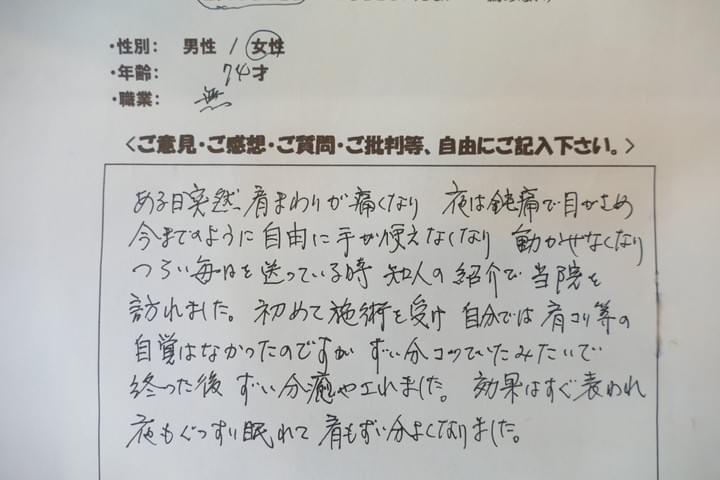 ・性別： 男性 / 女性
・年齢： 74才
・職業： 無
＜ご意見・ご感想・ご質問・ご批判等、自由にご記入下さい。＞
ある日突然、肩まわりが痛くなり 夜は鈍痛で目がさめ
今までのように自由に手が使えなくなり 動かせなくなり
つらい毎日を送っている時 知人の紹介で 当院を
訪れました。 初めて施術を受け 自分では肩コリ等の
自覚はなかったのですが ずい分コッていたみたいで
終った後 ずい分癒やエれました。 効果はすぐ表われ
夜もぐっすり眠れて 肩もずい分よくなりました。